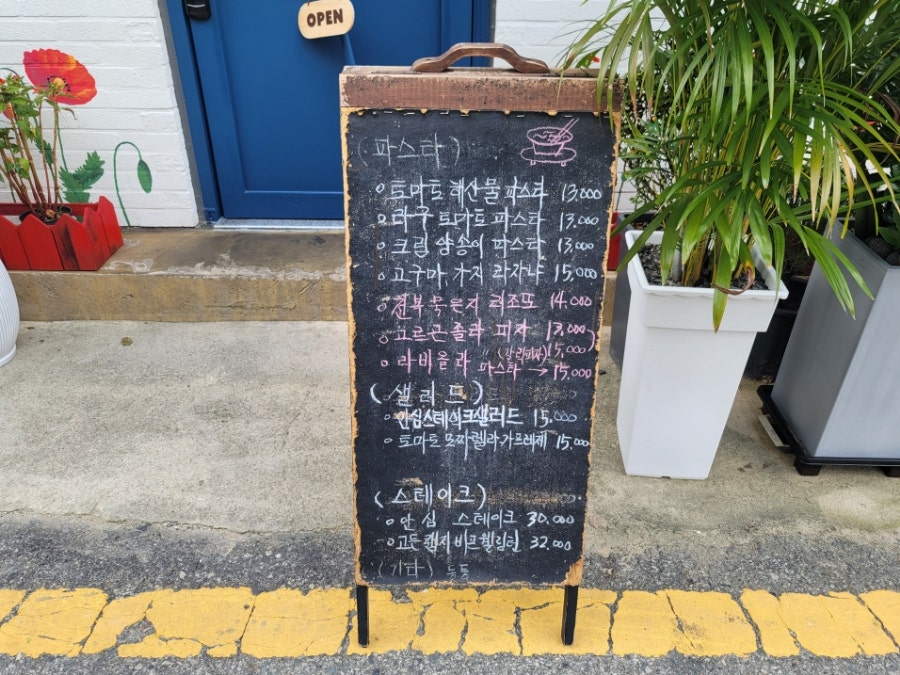 OPEN
(파스타)
토마토 해산물 파스타 13,000
라구 토마토 파스타 13,000
크림 양송이 파스타 13,000
고구마, 가지 라자냐 15,000
전복 묵은지 리조또 14,000
고르곤졸라 피자 13,000
〃 (갈릭피자) 15,000
라비올라 파스타 → 15,000
(샐러드)
안심스테이크샐러드 15,000
토마토 모짜렐라 가프레제 15,000
(스테이크)
안심 스테이크 30,000
32,000
(기타) 등등